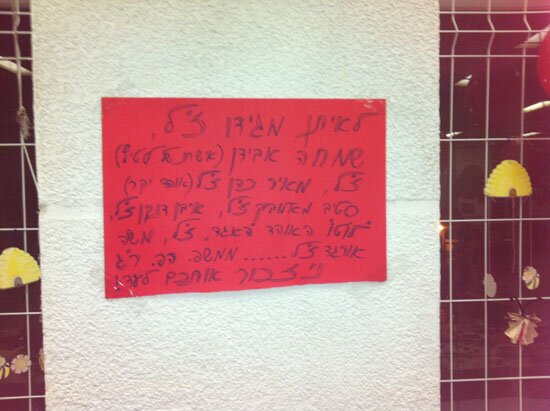 לאיתן מגידו ז"ל,
שמחה אבידן (אשתו של לטיף)
ז"ל, מאיר כהן ז"ל (אוהד יקר)
סטיב מאלוביק ז"ל, איבן דובקין ז"ל,
האוהד האגד. ז"ל, משה
אורגד ז"ל...... ממשפ. הפ. ר"ג
נ י ז כ ו ר אותכם לעד!